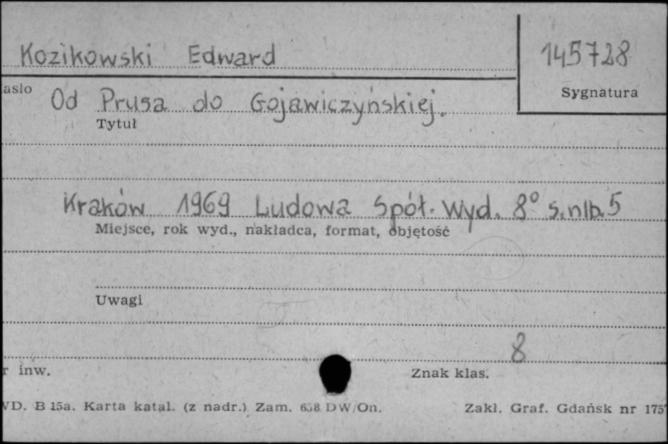 Kozikowski Edward
145728
asło
Sygnatura
Od Prusa do Gojawiczyńskiej.
Tytuł
Kraków 1969 Ludowa Spół. Wyd. 8° s. nlb. 5
Miejsce, rok wyd., nakładca, format, objętość
Uwagi
8
r inw.
Znak klas.
WD. B 15a. Karta katal. (z nadr.) Zam. 658 DW/On.
Zakł. Graf. Gdańsk nr 175